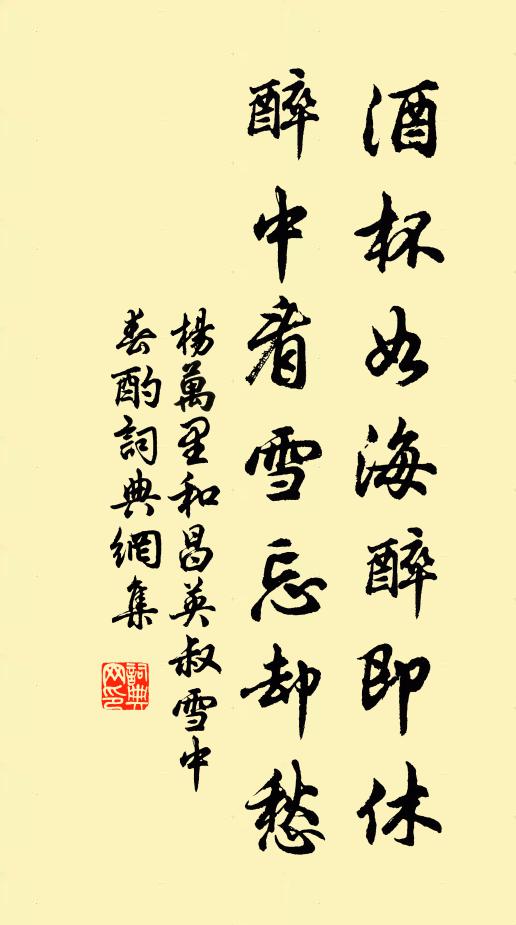 酒杯如海醉即休
醉中看雪忘却愁
楊萬里和昌英叔雪中
春酌詞典網集
詞典
网印